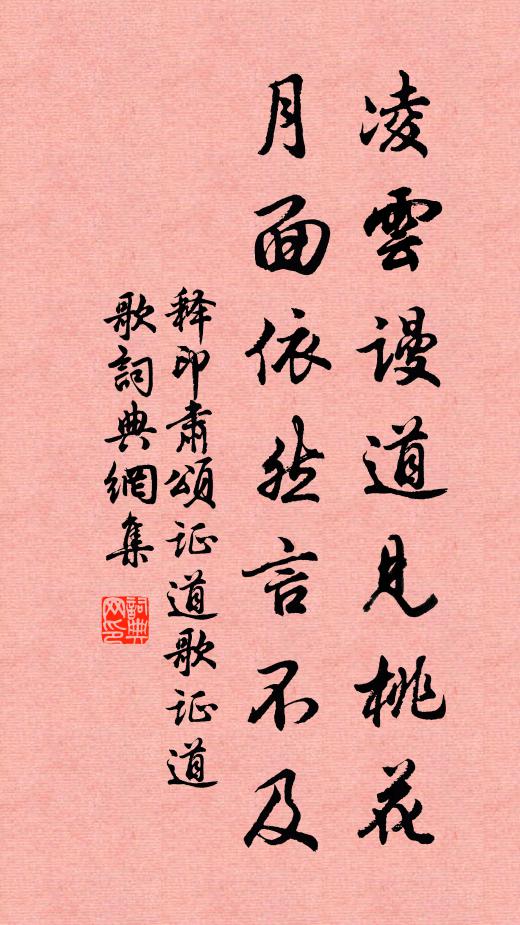 凌雲谩道見桃花
月面依然言不及
释印肃頌证道歌证道
歌詞典網集
詞典
网印